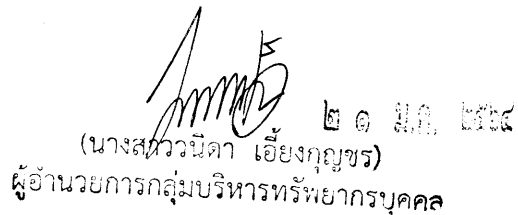 ๒๑ ม.ค. ๒๕๖๔
(นางสาววนิดา เอี้ยงกุญชร)
ผู้อำนวยการกลุ่มบริหารทรัพยากรบุคคล